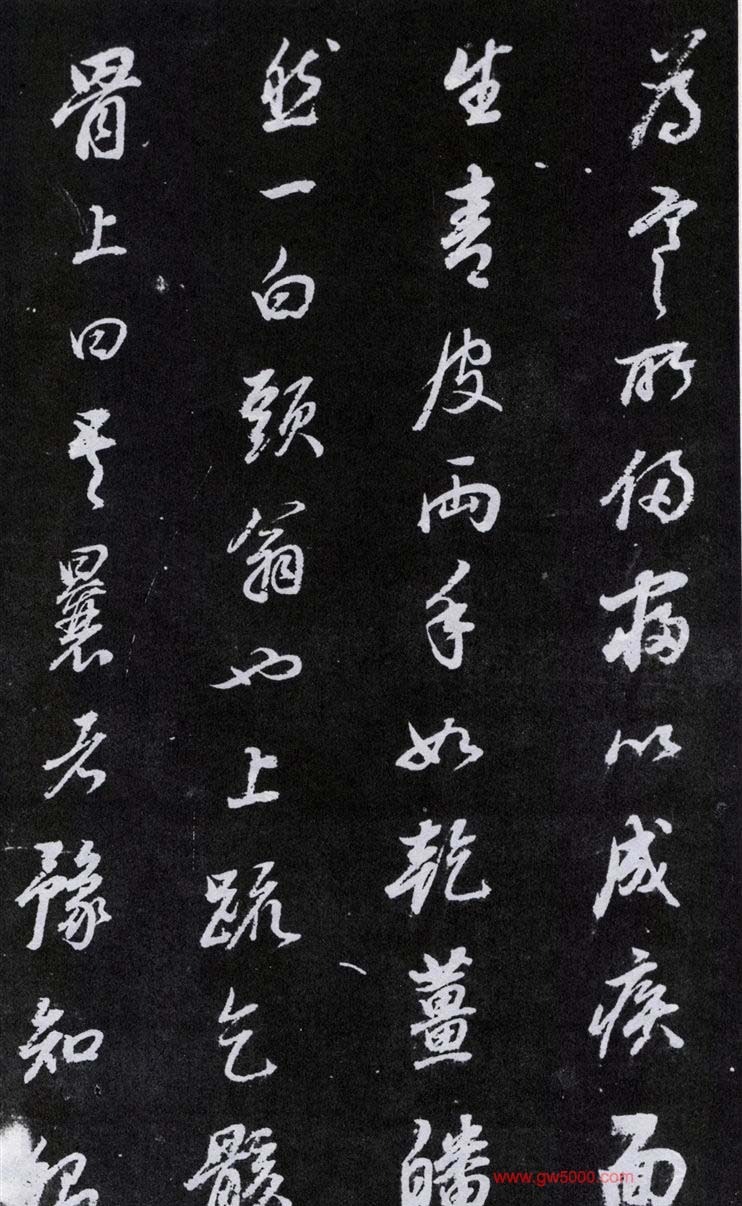 為所以成疾面
生青皮兩手如乾薑皤
然一白頭翁也上疏乞骸
骨上曰曩者豫知
www.gw5000.com